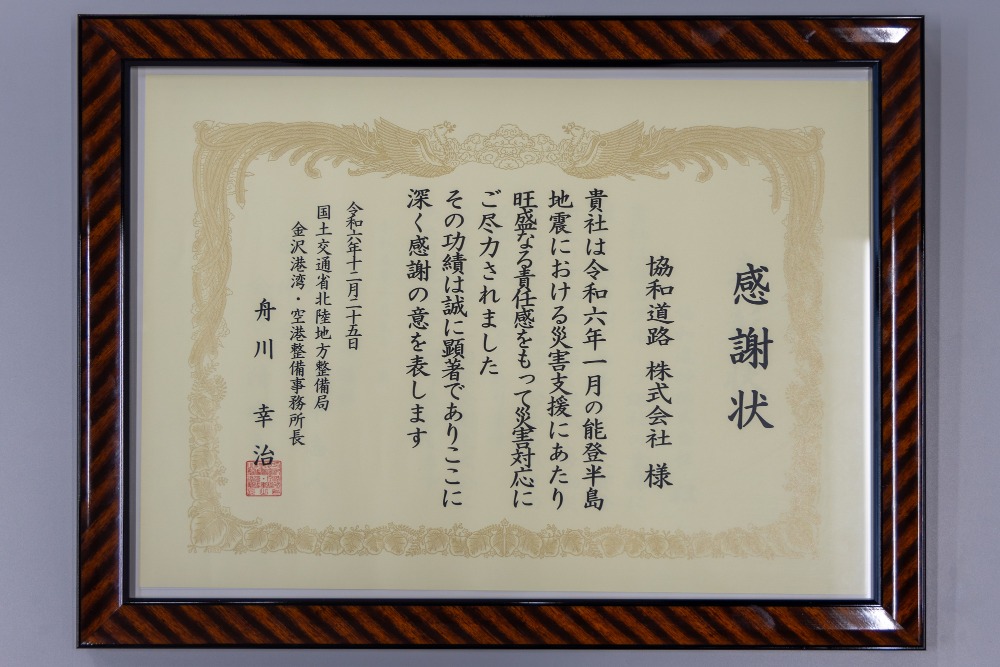 感謝状
協和道路 株式会社 様
貴社は令和六年一月の能登半島
地震における災害支援にあたり
旺盛なる責任感をもって災害対応に
ご尽力されました
その功績は誠に顕著でありここに
深く感謝の意を表します
令和六年十二月二十五日
国土交通省北陸地方整備局
金沢港湾・空港整備事務所長
舟川 幸治